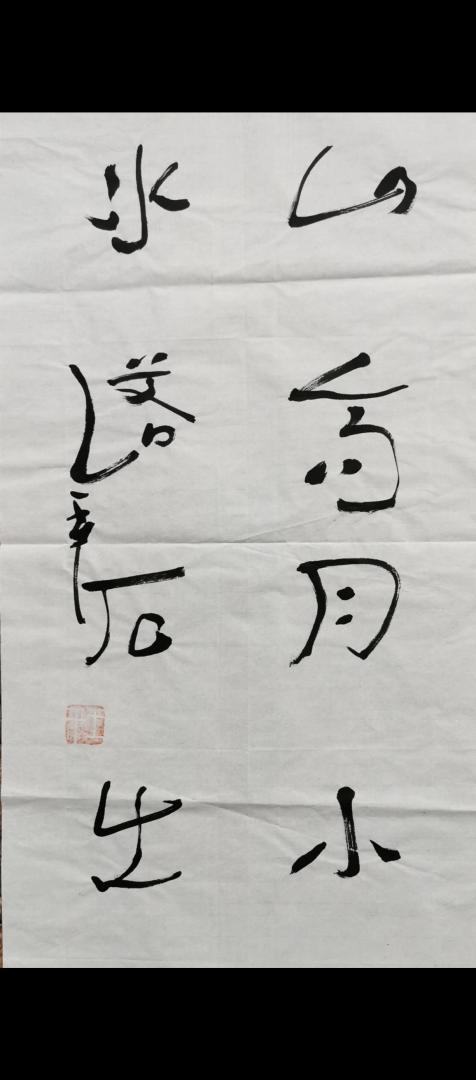 山高月小
水落石出